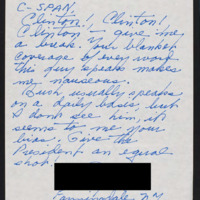 C-SPAN,
Clinton!, Clinton!
Clinton - give me
a break. Your blanket
coverage of every word
this guy speaks makes
me nauseous.
Bush usually speaks
on a daily basis, but
I dont see him, it
seems to me your
bias. Give the
President an equal
shot!
NY